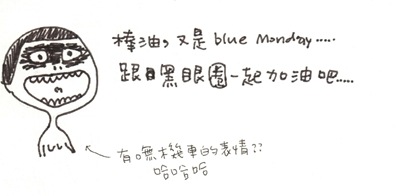 棒油，又是blue monday.....
跟黑眼圈一起加油吧.....
有嘸機車的表情??
哈哈哈